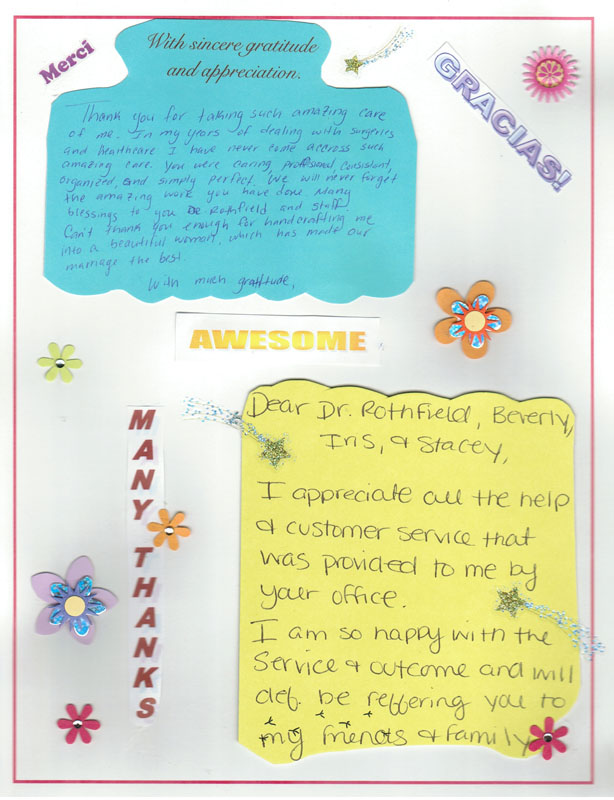 Merci
With sincere gratitude
and appreciation.
GRACIAS!
Thank you for taking such amazing care
of me. In my years of dealing with surgeries
and healthcare I have never come accross such
amazing care. You were caring, professional, consistant,
organized, and simply perfect. We will never forget
the amazing work you have done. Many
blessings to you Dr Rothfield and staff
Can't thank you enough for handcrafting me
into a beautiful woman, which has made our
marriage the best.
With much gratitude,
AWESOME
MANY THANKS
Dear Dr. Rothfield, Beverly,
Iris, & Stacey,
I appreciate all the help
& customer service that
was provided to me by
your office.
I am so happy with the
service & outcome and will
def. be reffering you to
my friends & family